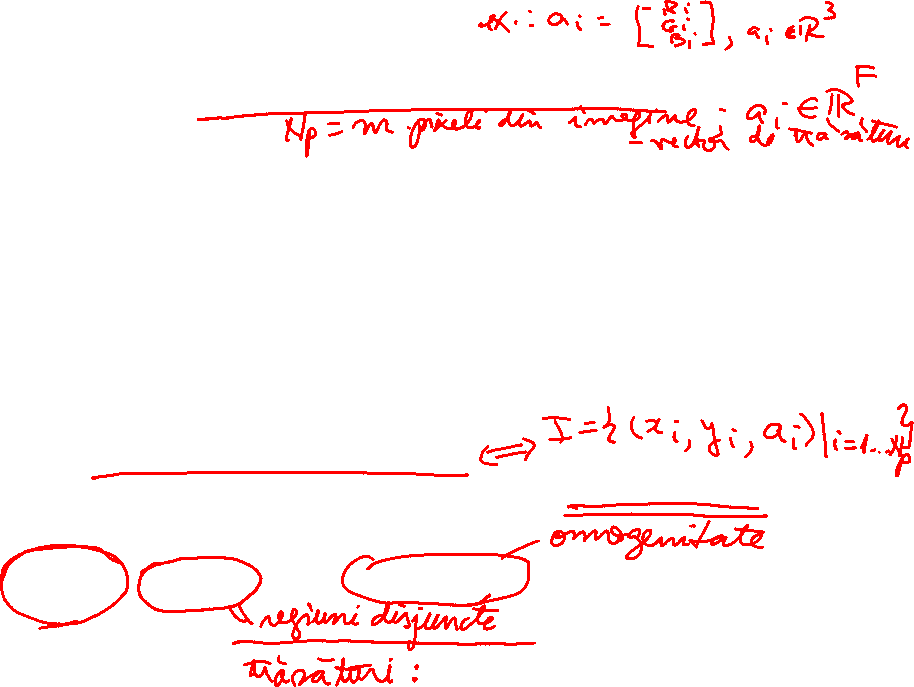 ex.: a_i = [R_i G_i B_i], a_i ∈ ℝ^3
N_p = nr pixeli din imagine; a_i ∈ ℝ^F,
- vector de trăsături
⟺ I = {(x_i, y_i, a_i) | i=1...N_p}
omogenitate
regiuni disjuncte
trăsături :